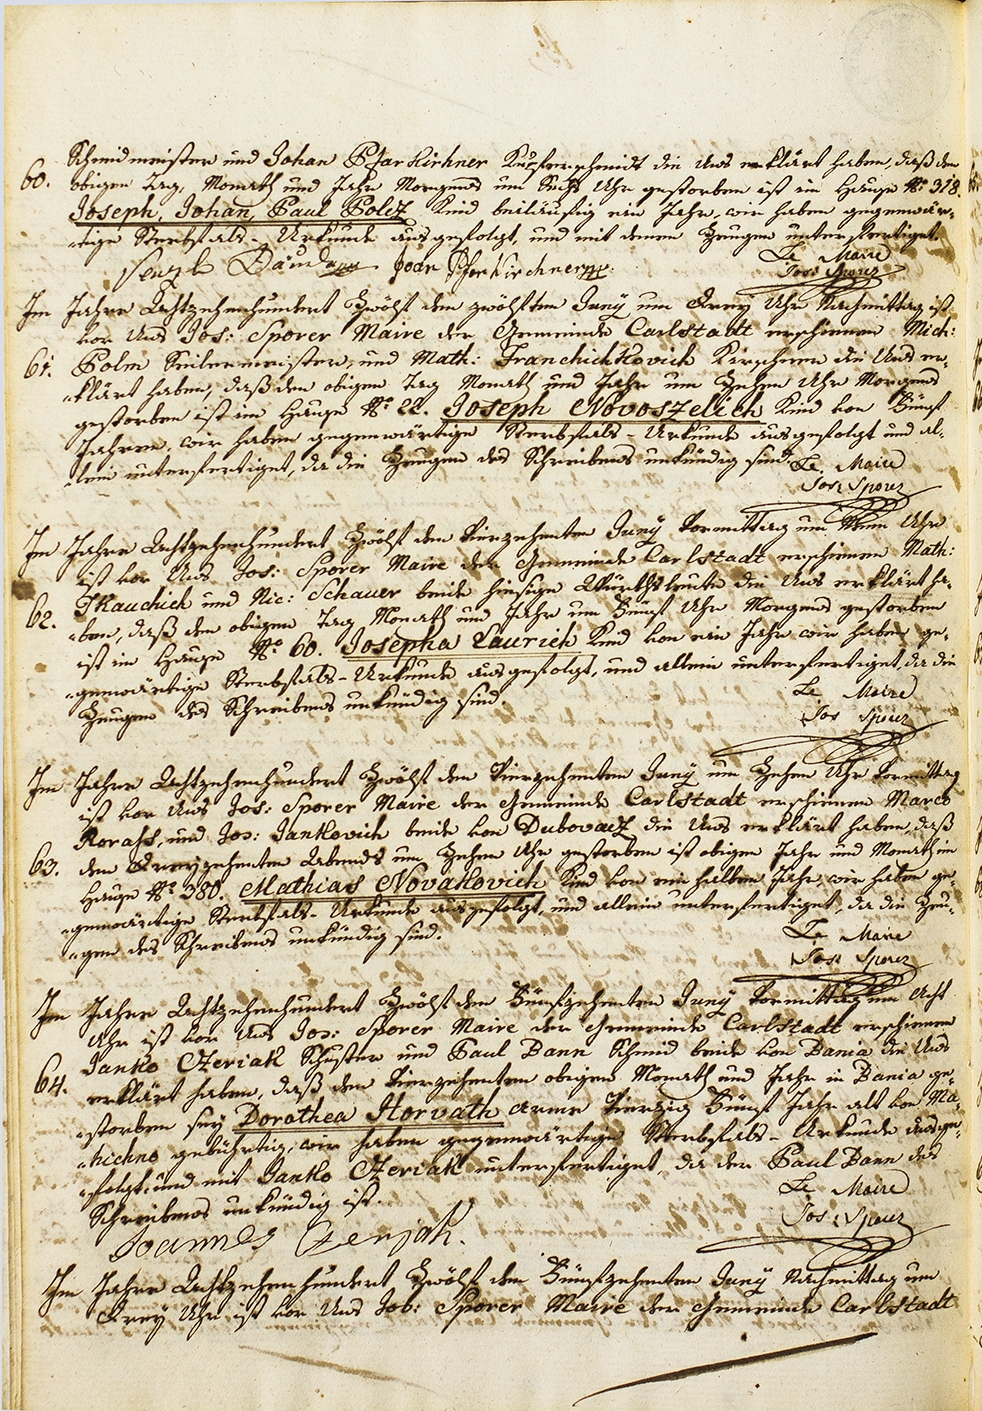 Schmidmeister und Johan Pfarkirhner Kupferschmidt die Uns erklärt haben, daß den
60. obigen Tag, Monath und Jahr Morgens um Sechs Uhr gestorben ist im Hause No: 318.
Joseph, Johan, Paul Poletz Kind beiläufig ein Jahr, wir haben gegenwär-
-tige Sterbfals-Urkunde ausgefolgt, und mit denen Zeugen unterfertiget.
Le Maire
Joseph Joan Pfarkirchner
Jos: Sporer
Im Jahre Achtzehenhundert Zwölf den zwölften Juny um Drey Uhr Nachmittag ist
vor Uns Jos: Sporer Maire der Gemeinde Carlstadt erschienen Mich:
61. Polm Seilermeister, und Math: Franchichkovich Kirschner die Uns er-
-klärt haben, daß den obigen Tag Monath und Jahr um Zehen Uhr Morgens
gestorben ist im Hause No: 22. Joseph Novoszelich Kind von Fünf
Jahren, wir haben gegenwärtige Sterbfals-Urkunde ausgefolgt und al-
-lein unterfertiget, da die Zeugen des Schreibens unkündig sind.
Le Maire
Jos: Sporer
Im Jahre Achtzehenhundert Zwölf den Vierzehenten Juny Vormittag um Neun Uhr
ist vor Uns Jos: Sporer Maire der Gemeinde Carlstadt erschienen Math:
62. Skauchich und Nic: Schauer beide hiesige Würthsleute die Uns erklärt ha-
-ben, daß den obigen Tag Monath und Jahr um Fünf Uhr Morgens gestorben
ist im Hause No: 60. Josepha Laurich Kind von ein Jahr wir haben ge-
-genwärtige Sterbfals-Urkunde ausgefolgt, und allein unterfertiget, da die
Zeugen des Schreibens unkündig sind.
Le Maire
Jos Sporer
Im Jahre Achtzehenhundert Zwölf den Vierzehenten Juny um Zehen Uhr Vormittag
ist vor Uns Jos: Sporer Maire der Gemeinde Carlstadt erschienen Marco
Korass, und Jos: Jankovich beide von Dubovacz die Uns erklärt haben, daß
63. den Dreyzehenten Abends um Zehen Uhr gestorben ist obigen Jahr und Monath im
Hause No: 380. Mathias Novakovich Kind von ein halben Jahr, wir haben ge-
-genwärtige Sterbfals-Urkunde ausgefolgt, und allein unterfertiget, da die Zeu-
-gen des Schreibens unkündig sind.
Le Maire
Jos: Sporer
Im Jahre Achtzehenhundert Zwölf den Fünfzehenten Juny Vormittag um Acht
Uhr ist vor Uns Jos: Sporer Maire der Gemeinde Carlstadt erschienen
Janko Czeriak Schuster und Paul Bann Schmid beide von Bania die Uns
64. erklärt haben, daß den Vierzehenten obigen Monath und Jahr in Bania ge-
-storben sey Dorothea Horvath Arme Vierzig Fünf Jahr alt von Ma-
-hichno gebührtig, wir haben gegenwärtige Sterbfals-Urkunde ausge-
-folgt, und mit Janko Czeriak unterfertiget, da der Paul Bann des
Schreibens unkündig ist.
Le Maire
Jos: Sporer
Joannes Czerjak.
Im Jahre Achtzehenhundert Zwölf den Fünfzehenten Juny Nachmittag um
Drey Uhr ist vor Uns Jos: Sporer Maire der Gemeinde Carlstadt